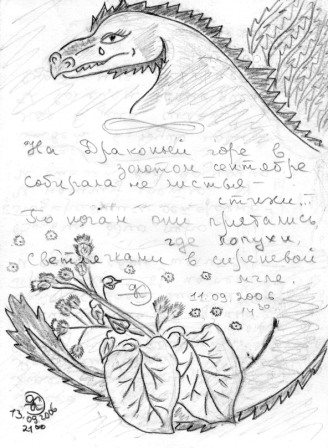 На Драконьей горе в
золотом сентябре
собирала не листья –
стихи...
По ногам они прятались,
где лопухи,
светлячками в сиреневой
мгле.
11.09.2006
14 30
13.09.2006
21 00